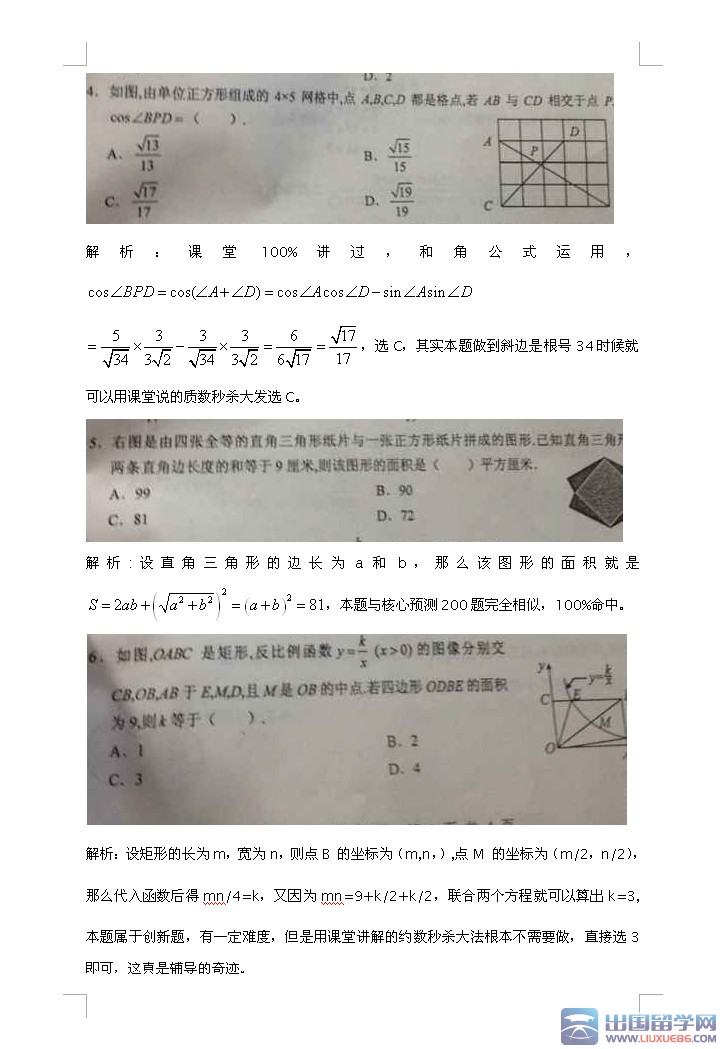 D. 2
4. 如图,由单位正方形组成的 4×5 网格中,点 A,B,C,D 都是格点,若 AB 与 CD 相交于点 P.
cos∠BPD=（ ）.
A. √13/13
B. √15/15
C. √17/17
D. √19/19
A
D
P
C
解析：课堂100%讲过，和角公式运用，
cos∠BPD=cos(∠A+∠D)=cos∠Acos∠D−sin∠Asin∠D
=5/√34×3/3√2−3/√34×3/3√2=6/6√17=√17/17，选C，其实本题做到斜边是根号34时候就
可以用课堂说的质数秒杀大发选C。
5. 右图是由四张全等的直角三角形纸片与一张正方形纸片拼成的图形.已知直角三角形
两条直角边长度的和等于9厘米,则该图形的面积是（ ）平方厘米.
A. 99
B. 90
C. 81
D. 72
解析:设直角三角形的边长为a和b，那么该图形的面积就是
S=2ab+(√a²+b²)²=(a+b)²=81，本题与核心预测200题完全相似，100%命中。
6. 如图,OABC 是矩形,反比例函数 y=k/x (x>0) 的图像分别交
CB,OB,AB 于 E,M,D,且 M 是 OB 的中点.若四边形 ODBE 的面积
为9,则 k 等于（ ）.
A. 1
B. 2
C. 3
D. 4
y
y=k/x
C
E
M
O
解析：设矩形的长为m，宽为n，则点B 的坐标为（m,n,）,点M 的坐标为（m/2，n/2），
那么代入函数后得mn/4=k，又因为mn=9+k/2+k/2，联合两个方程就可以算出k=3,
本题属于创新题，有一定难度，但是用课堂讲解的约数秒杀大法根本不需要做，直接选3
即可，这真是辅导的奇迹。
出国留学网
WWW.LIUXUE86.COM